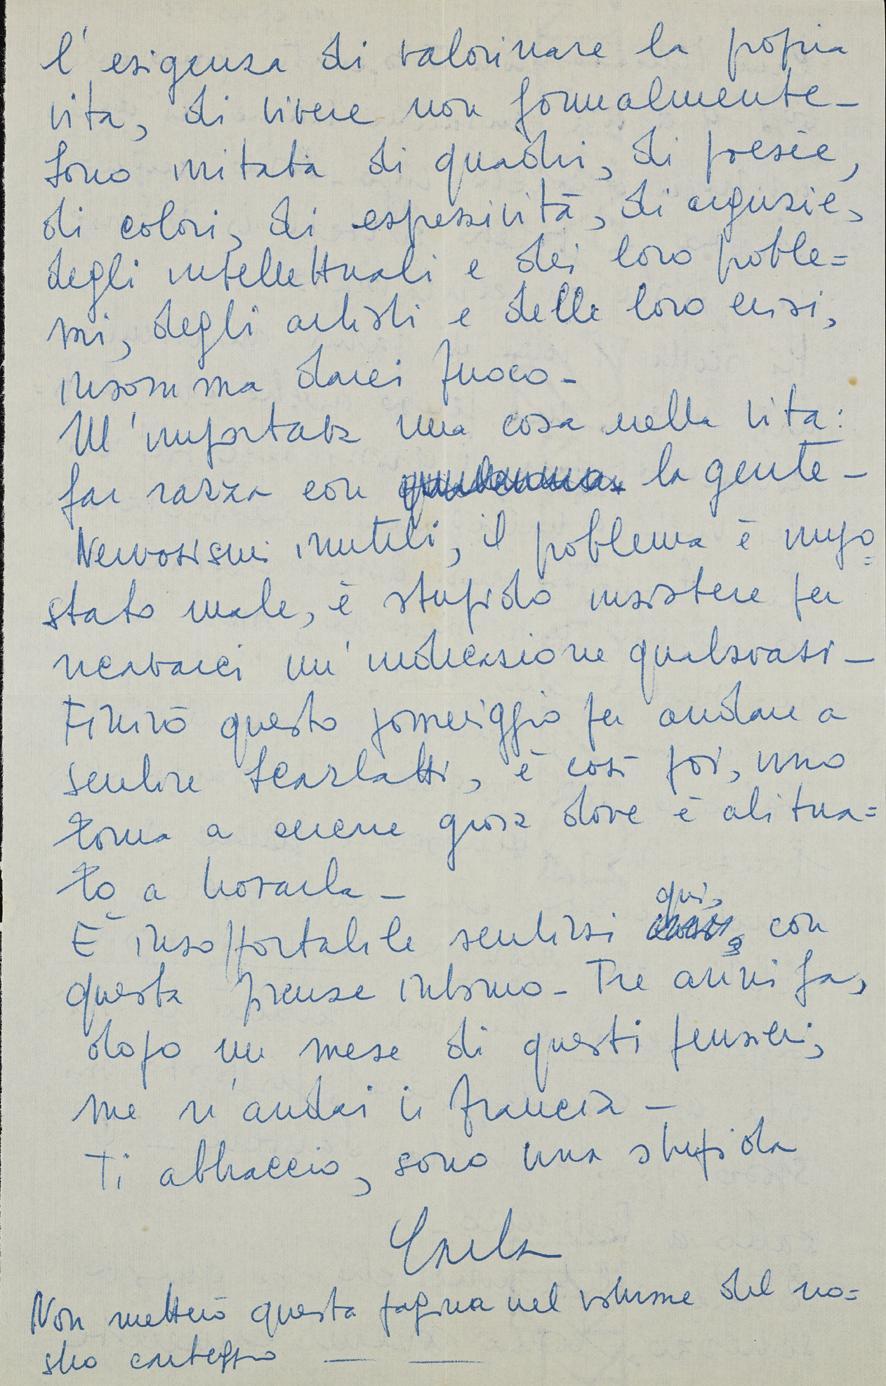 l'esigenza di valorizzare la propria
vita, di vivere non formalmente –
Sono irritata di quadri, di poesie,
di colori, di espressività, di arguzie,
degli intellettuali e dei loro proble=
mi, degli artisti e delle loro crisi,
insomma darci fuoco –
M'importava una cosa nella vita:
far razza con la gente –
Nervosismi inutili, il problema è impo=
stato male, è stupido insistere per
ricavarci un'indicazione qualsiasi –
Finirò questo pomeriggio per andare a
sentire Scarlatti, è così poi, uno
torna a essere dove è abitua=
to a trovarla –
È insopportabile sentirsi qui, con
questa intorno – Tre anni fa,
dopo un mese di questi pensieri,
me n'andai in Francia –
Ti abbraccio, sono una stupida
Carla
Non metterò questa pagina nel volume del no=
stro carteggio — —